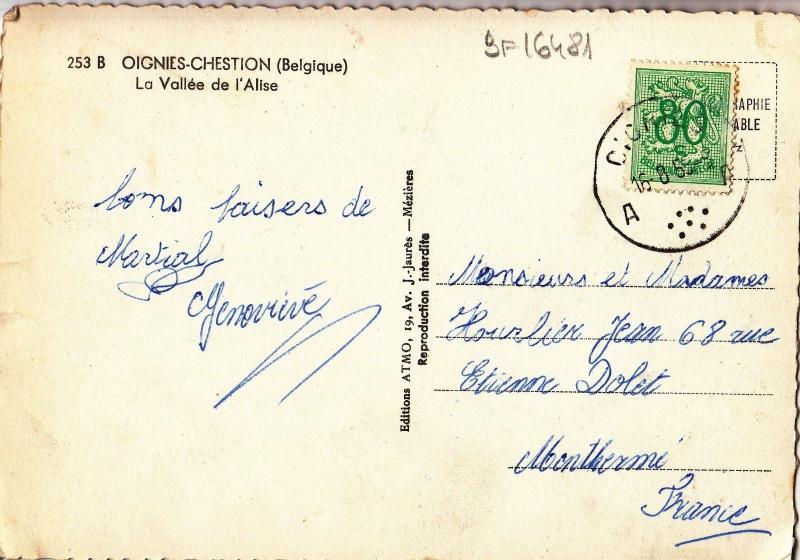 253 B OIGNIES-CHESTION (Belgique)
La Vallée de l'Alise
9F 16481
bons baisers de
Martial
Genoviève
Editions ATMO, 19, Av. J.-Jaurès — Mézières
Reproduction interdite
80
RAPHIE
ABLE
A
Monsieurs et Madames
Hourlier Jean 68 rue
Etienne Dolet
Monthermé
France